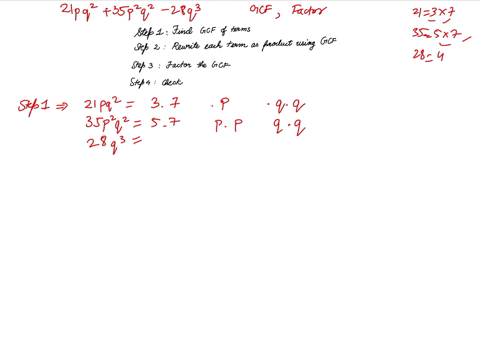 21pq² + 35p²q² - 28q³ GCF, Factor
Step 1: Find GCF of terms
Step 2: Rewrite each term as product using GCF
Step 3: Factor the GCF
Step 4: Check
21 = 3 × 7
35 = 5 × 7
28 = 4
Step 1 ⇒ 21pq² = 3 . 7 . p . q . q
35p²q² = 5 . 7 p . p q . q
28q³ =